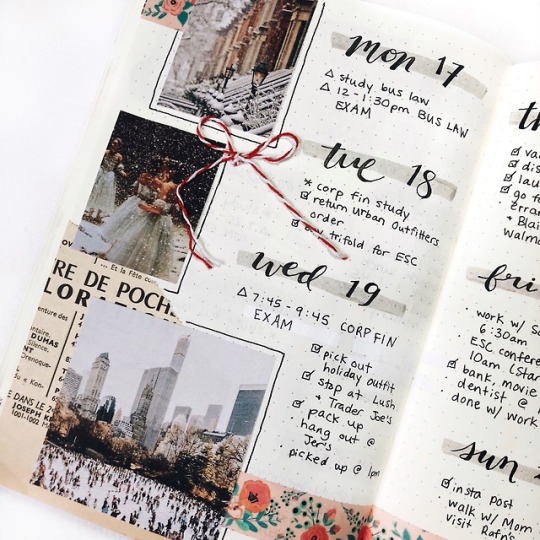 mon 17
△ study bus law
△ 12-1:30pm BUS LAW
EXAM
tue 18
* corp fin study
☑ return Urban Outfitters
order
☑ buy trifold for ESC
wed 19
△ 7:45-9:45 CORP FIN
EXAM
☑ pick out
holiday outfit
☑ stop at Lush
+ Trader Joe's
☑ pack up
hang out @
Jer's
· picked up @ 1pm
... Et la Fête
RE DE POCH
LOR
enture des
DUMAS
Silence,
NT
Orenoque-
o Kon.
DANS LE
JOSEPH
1001-1002
☑
☑
☑
☑ go
* Blai
walma
fri
· work w/
6:30am
ESC confere
10am (Star
☑ bank, movie
· dentist @
done w/ work
sun
☑ insta post
· walk w/ Mom
visit Rafn's